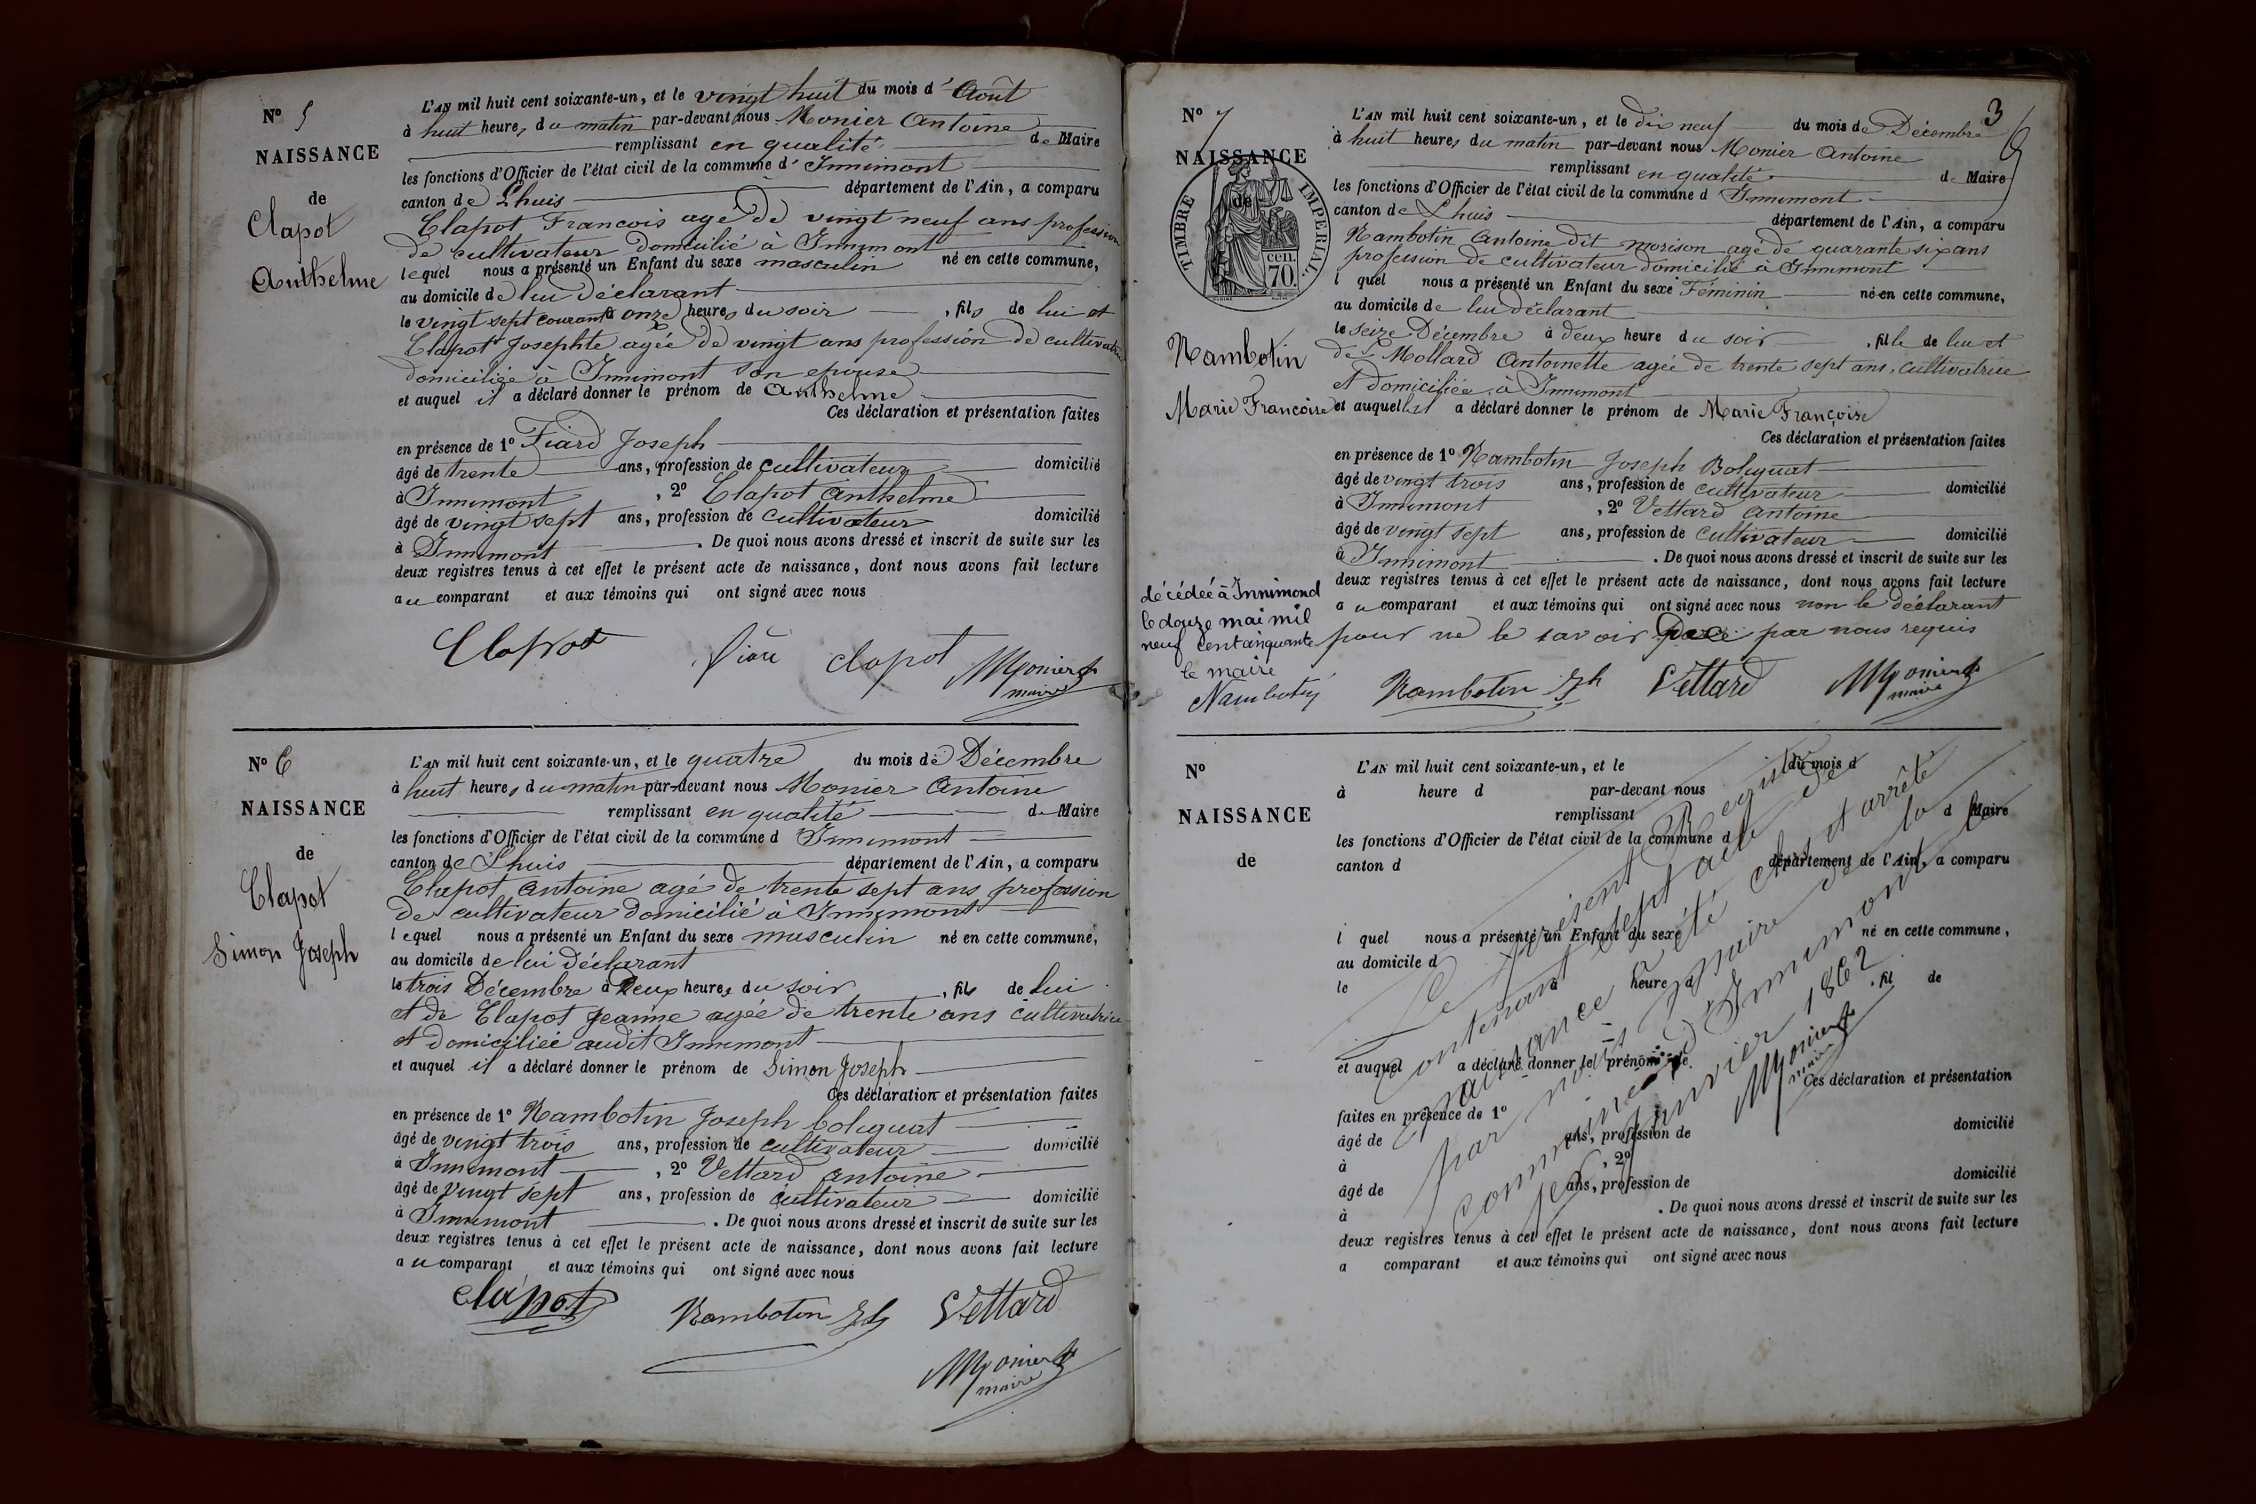 N° 5
NAISSANCE
de
Clapot
Anthelme
L'AN mil huit cent soixante-un, et le vingt huit du mois d' Août
à huit heures du matin par-devant nous Monier Antoine
remplissant en qualité de Maire
les fonctions d'Officier de l'état civil de la commune d' Innimont
canton de Lhuis département de l'Ain, a comparu
Clapot Francois agé de vingt neuf ans profession
de cultivateur domicilié à Innimont
lequel nous a présenté un Enfant du sexe masculin né en cette commune,
au domicile de lui déclarant
le vingt sept courant à onze heures du soir, fils de lui et
Clapot Josephte agée de vingt ans profession de cultivatrice
domiciliée à Innimont son epouse
et auquel il a déclaré donner le prénom de Anthelme
Ces déclaration et présentation faites
en présence de 1° Fiard Joseph
âgé de trente ans, profession de cultivateur domicilié
à Innimont, 2° Clapot Anthelme
âgé de vingt sept ans, profession de cultivateur domicilié
à Innimont. De quoi nous avons dressé et inscrit de suite sur les
deux registres tenus à cet effet le présent acte de naissance, dont nous avons fait lecture
au comparant et aux témoins qui ont signé avec nous
Clapot clapot Monier
maire
N° 6
NAISSANCE
de
Clapot
Simon Joseph
L'AN mil huit cent soixante-un, et le quatre du mois de Décembre
à huit heures du matin par-devant nous Monier Antoine
remplissant en qualité de Maire
les fonctions d'Officier de l'état civil de la commune d Innimont
canton de Lhuis département de l'Ain, a comparu
Clapot Antoine agé de trente sept ans profession
de cultivateur domicilié à Innimont
lequel nous a présenté un Enfant du sexe masculin né en cette commune,
au domicile de lui déclarant
le trois Décembre à deux heures du soir, fils de lui
et de Clapot Jeanne agée de trente ans cultivatrice
et domiciliée audit Innimont
et auquel il a déclaré donner le prénom de Simon Joseph
Ces déclaration et présentation faites
en présence de 1° Nambotin Joseph
âgé de vingt trois ans, profession de cultivateur domicilié
à Innimont, 2° Vettard Antoine
âgé de vingt sept ans, profession de cultivateur domicilié
à Innimont. De quoi nous avons dressé et inscrit de suite sur les
deux registres tenus à cet effet le présent acte de naissance, dont nous avons fait lecture
au comparant et aux témoins qui ont signé avec nous
Clapot Nambotin Jph Vettard
Monier
maire
3
N° 7
NAISSANCE
de
TIMBRE IMPÉRIAL.
cen.
70.
Nambotin
Marie Françoise
L'AN mil huit cent soixante-un, et le dix neuf du mois de Décembre
à huit heures du matin par-devant nous Monier Antoine
remplissant en qualité de Maire
les fonctions d'Officier de l'état civil de la commune d Innimont
canton de Lhuis département de l'Ain, a comparu
Nambotin Antoine dit morison agé de quarante six ans
profession de cultivateur domicilié à Innimont
l quel nous a présenté un Enfant du sexe Féminin né en cette commune,
au domicile de lui déclarant
le seize Décembre à deux heure du soir, fille de lui et
de Mollard Antoinette agée de trente sept ans, cultivatrice
et domiciliée à Innimont
et auquel il a déclaré donner le prénom de Marie Françoise
Ces déclaration et présentation faites
en présence de 1° Nambotin Joseph
âgé de vingt trois ans, profession de cultivateur domicilié
à Innimont, 2° Vettard Antoine
âgé de vingt sept ans, profession de cultivateur domicilié
à Innimont. De quoi nous avons dressé et inscrit de suite sur les
deux registres tenus à cet effet le présent acte de naissance, dont nous avons fait lecture
au comparant et aux témoins qui ont signé avec nous non le déclarant
pour ne le savoir par nous requis
décédée à Innimond
le douze mai mil
neuf cent cinquante
le maire
Nambotin
Nambotin Jph Vettard Monier
maire
N°
NAISSANCE
de
L'AN mil huit cent soixante-un, et le du mois d
à heure d par-devant nous
remplissant d Maire
les fonctions d'Officier de l'état civil de la commune d
canton d département de l'Ain, a comparu
l quel nous a présenté un Enfant du sexe né en cette commune,
au domicile d
le à heure d, fil de
et auquel a déclaré donner le prénom de
Ces déclaration et présentation
faites en présence de 1°
âgé de ans, profession de domicilié
à, 2°
âgé de ans, profession de domicilié
à. De quoi nous avons dressé et inscrit de suite sur les
deux registres tenus à cet effet le présent acte de naissance, dont nous avons fait lecture
a comparant et aux témoins qui ont signé avec nous
Le présent Registre
contenant sept acte de
naissance a été clos et arrêté
par nous maire de la
commune d'Innimont le
janvier 1862
Monier
maire